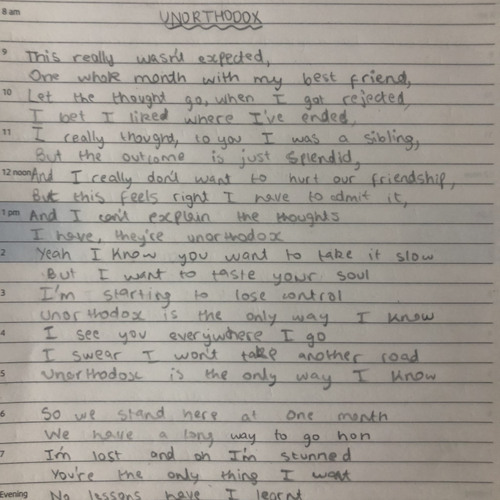 8 am
UNORTHODOX
9 This really wasn't expected,
One whole month with my best friend,
10 Let the thought go, when I got rejected,
I bet I liked where I've ended,
11 I really thought, to you I was a sibling,
But the outcome is just splendid,
12 noon And I really don't want to hurt our friendship,
But this feels right I have to admit it,
1 pm And I can't explain the thoughts
I have, they're unorthodox
2 Yeah I know you want to take it slow
But I want to taste your soul
3 I'm starting to lose control
Unorthodox is the only way I know
4 I see you everywhere I go
I swear I won't take another road
5 Unorthodox is the only way I know
6 So we stand here at one month
We have a long way to go hon
7 I'm lost and oh I'm stunned
You're the only thing I want
Evening No lessons have I learnt